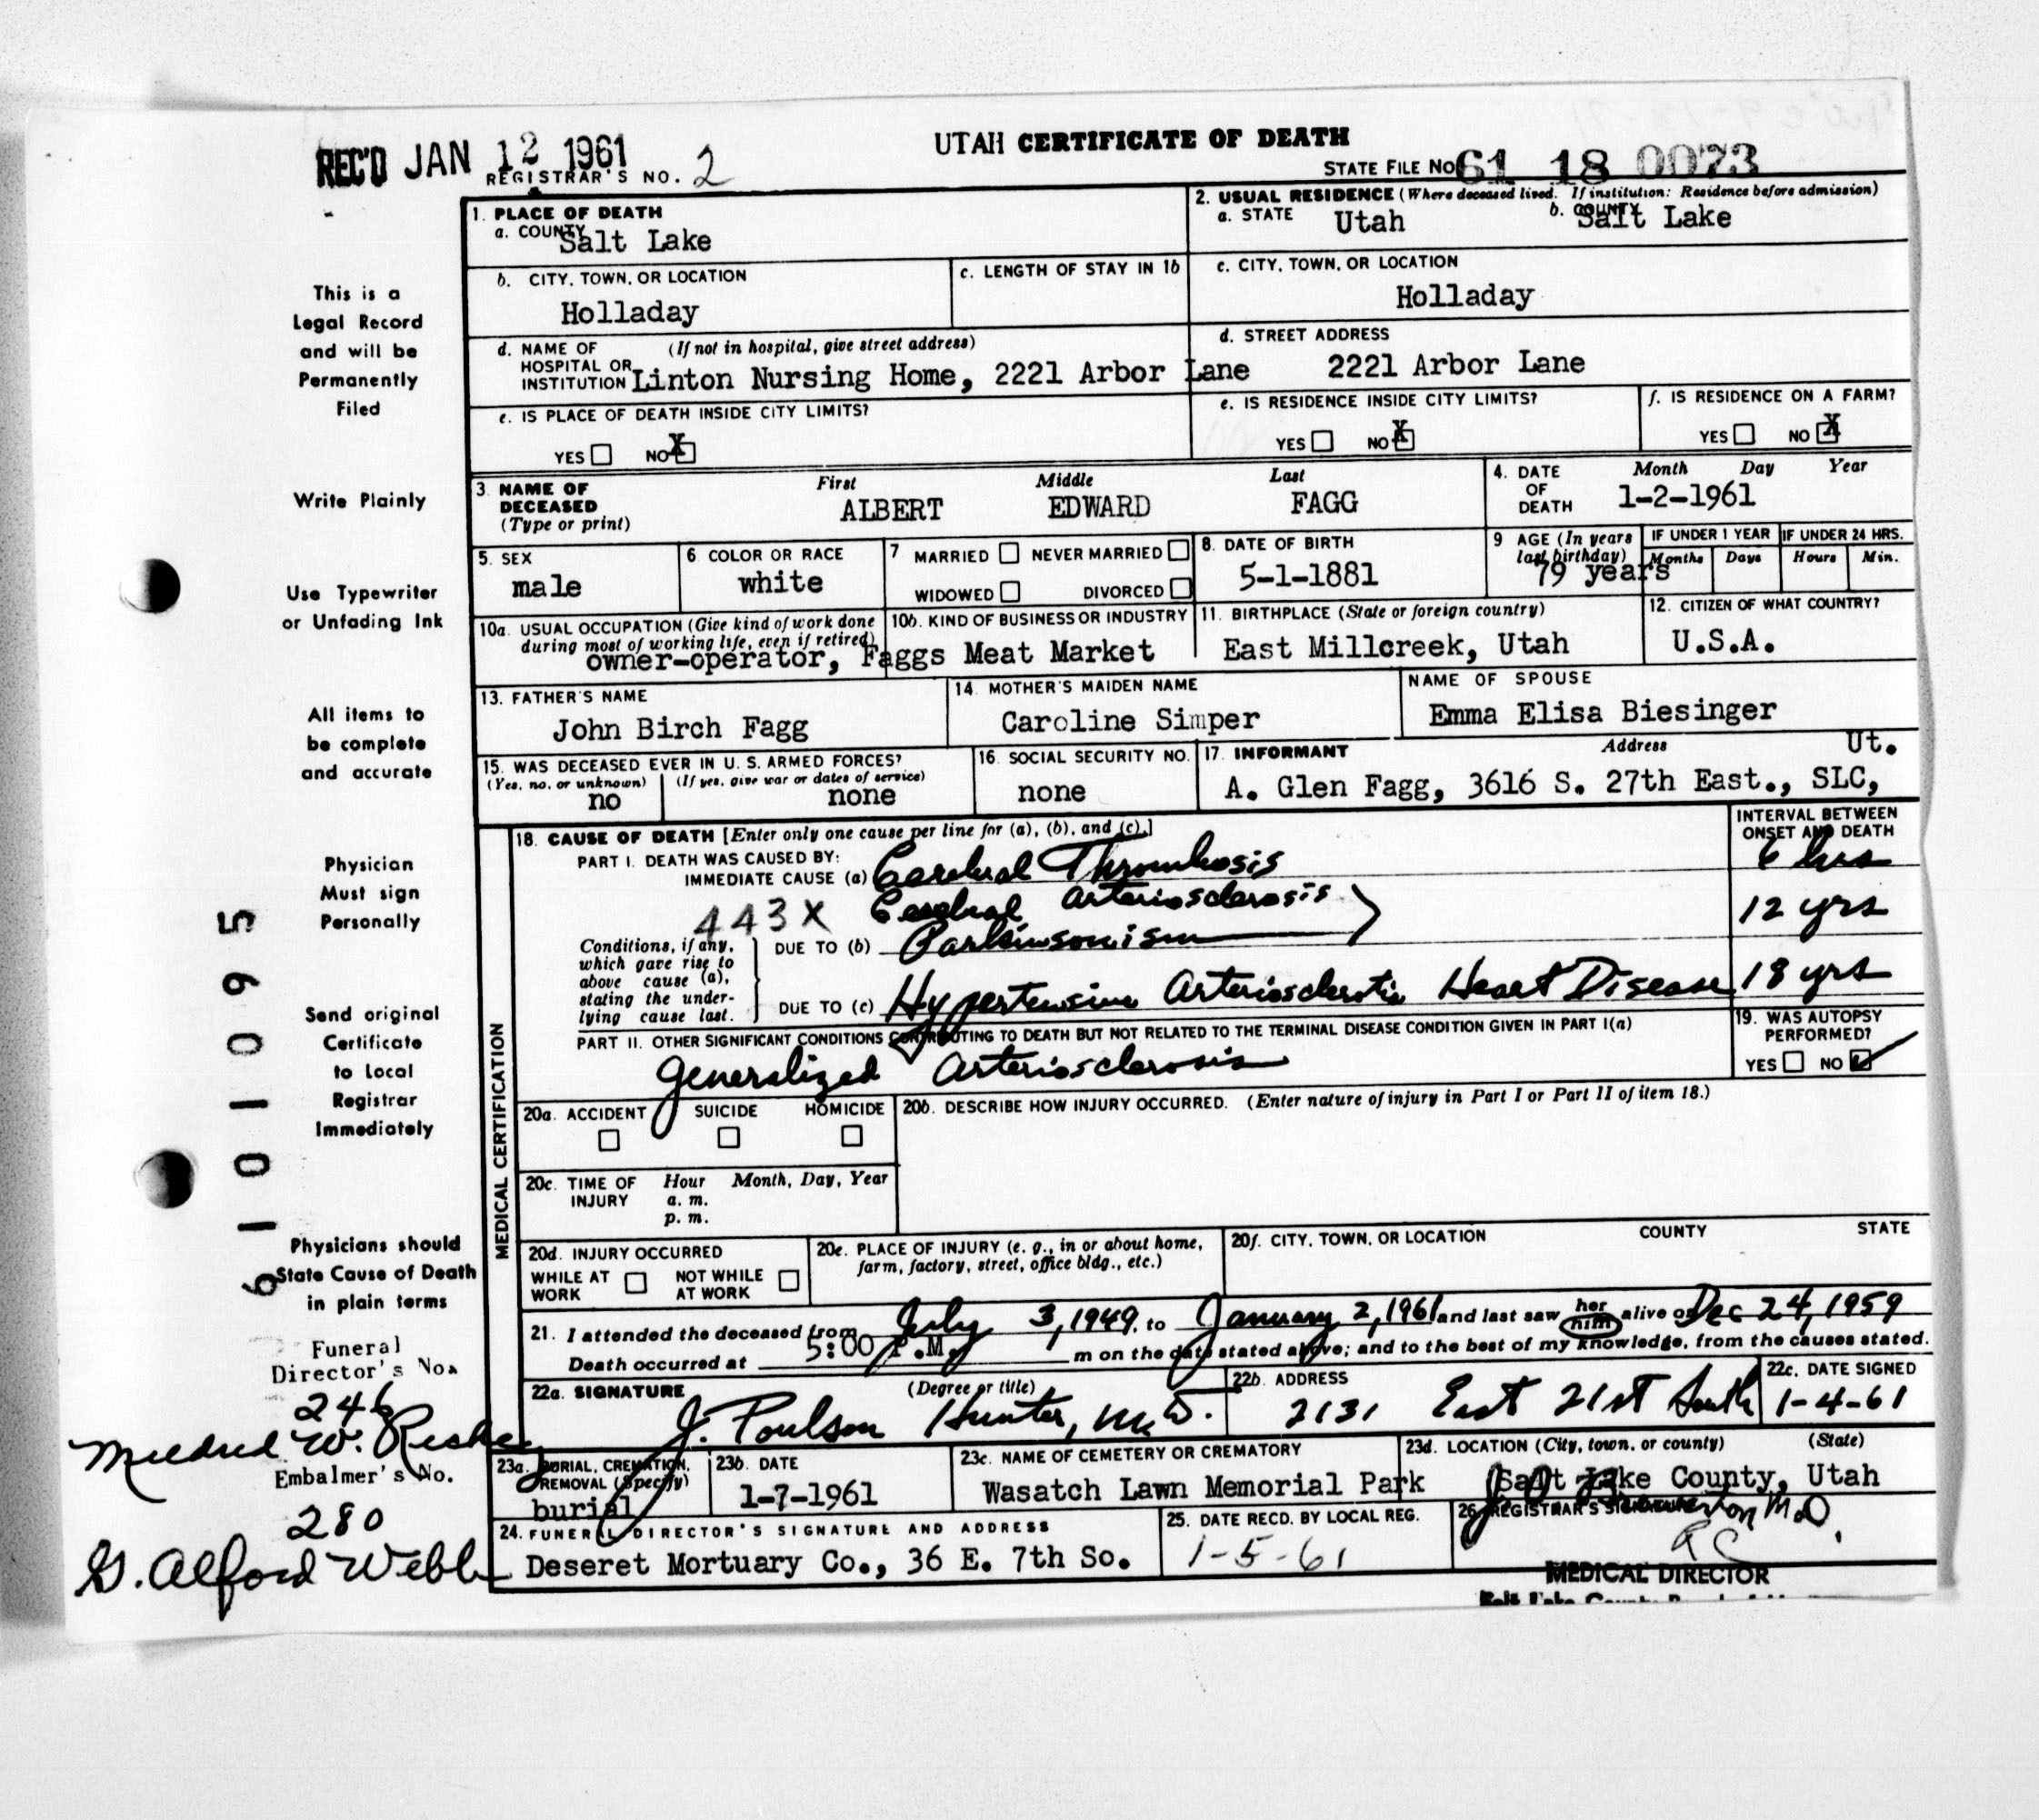 UTAH CERTIFICATE OF DEATH
REC'D JAN 12 1961
REGISTRAR'S NO. 2
STATE FILE NO 61 18 0073
1. PLACE OF DEATH
a. COUNTY Salt Lake
2. USUAL RESIDENCE (Where deceased lived. If institution: Residence before admission)
a. STATE Utah b. COUNTY Salt Lake
b. CITY, TOWN, OR LOCATION
Holladay
c. LENGTH OF STAY IN 1b
c. CITY, TOWN, OR LOCATION
Holladay
d. NAME OF HOSPITAL OR INSTITUTION (If not in hospital, give street address)
Linton Nursing Home, 2221 Arbor Lane
d. STREET ADDRESS
2221 Arbor Lane
e. IS PLACE OF DEATH INSIDE CITY LIMITS?
YES NO X
e. IS RESIDENCE INSIDE CITY LIMITS?
YES NO X
f. IS RESIDENCE ON A FARM?
YES NO X
3. NAME OF DECEASED (Type or print)
First Middle Last
ALBERT EDWARD FAGG
4. DATE OF DEATH Month Day Year
1-2-1961
5. SEX
male
6 COLOR OR RACE
white
7 MARRIED NEVER MARRIED
WIDOWED DIVORCED
8. DATE OF BIRTH
5-1-1881
9 AGE (In years last birthday)
79 years
IF UNDER 1 YEAR
Months Days
IF UNDER 24 HRS.
Hours Min.
10a. USUAL OCCUPATION (Give kind of work done during most of working life, even if retired)
10b. KIND OF BUSINESS OR INDUSTRY
owner-operator, Faggs Meat Market
11. BIRTHPLACE (State or foreign country)
East Millcreek, Utah
12. CITIZEN OF WHAT COUNTRY?
U.S.A.
13. FATHER'S NAME
John Birch Fagg
14. MOTHER'S MAIDEN NAME
Caroline Simper
NAME OF SPOUSE
Emma Elisa Biesinger
15. WAS DECEASED EVER IN U. S. ARMED FORCES?
(Yes, no, or unknown) (If yes, give war or dates of service)
no none
16. SOCIAL SECURITY NO.
none
17. INFORMANT Address
A. Glen Fagg, 3616 S. 27th East., SLC, Ut.
18. CAUSE OF DEATH [Enter only one cause per line for (a), (b), and (c).]
INTERVAL BETWEEN ONSET AND DEATH
PART I. DEATH WAS CAUSED BY:
IMMEDIATE CAUSE (a) Cerebral Thrombosis 6 hrs
443X Cerebral Arteriosclerosis
DUE TO (b) Parkinsonism 12 yrs
Conditions, if any, which gave rise to above cause (a), stating the underlying cause last.
DUE TO (c) Hypertensive Arteriosclerotic Heart Disease 18 yrs
PART II. OTHER SIGNIFICANT CONDITIONS CONTRIBUTING TO DEATH BUT NOT RELATED TO THE TERMINAL DISEASE CONDITION GIVEN IN PART I(a)
Generalized Arteriosclerosis
19. WAS AUTOPSY PERFORMED?
YES NO ✓
MEDICAL CERTIFICATION
20a. ACCIDENT SUICIDE HOMICIDE
20b. DESCRIBE HOW INJURY OCCURRED. (Enter nature of injury in Part I or Part II of item 18.)
20c. TIME OF INJURY Hour Month, Day, Year
a. m.
p. m.
20d. INJURY OCCURRED
WHILE AT WORK NOT WHILE AT WORK
20e. PLACE OF INJURY (e. g., in or about home, farm, factory, street, office bldg., etc.)
20f. CITY, TOWN, OR LOCATION COUNTY STATE
21. I attended the deceased from July 3, 1949, to January 2, 1961 and last saw her him alive on Dec 24, 1959
Death occurred at 5:00 P.M. m on the date stated above; and to the best of my knowledge, from the causes stated.
22a. SIGNATURE (Degree or title)
J. Poulson Hunter, M.D.
22b. ADDRESS
2131 East 21st South
22c. DATE SIGNED
1-4-61
23a. BURIAL, CREMATION, REMOVAL (Specify)
burial
23b. DATE
1-7-1961
23c. NAME OF CEMETERY OR CREMATORY
Wasatch Lawn Memorial Park
23d. LOCATION (City, town, or county) (State)
Salt Lake County, Utah
24. FUNERAL DIRECTOR'S SIGNATURE AND ADDRESS
Deseret Mortuary Co., 36 E. 7th So.
25. DATE RECD. BY LOCAL REG.
1-5-61
26. REGISTRAR'S SIGNATURE
M.D.
MEDICAL DIRECTOR
This is a
Legal Record
and will be
Permanently
Filed
Write Plainly
Use Typewriter
or Unfading Ink
All items to
be complete
and accurate
Physician
Must sign
Personally
Send original
Certificate
to Local
Registrar
Immediately
Physicians should
State Cause of Death
in plain terms
Funeral
Director's No.
246
Mildred W.
Embalmer's No.
280
G. Alford Webb
6101095